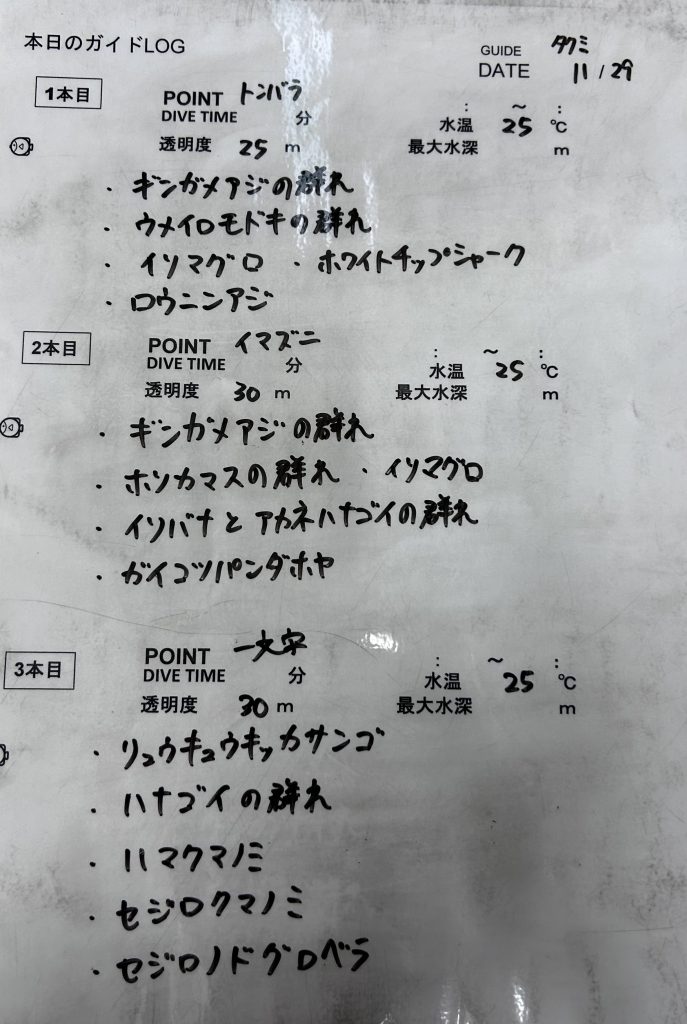 本日のガイドLOG
GUIDE タクミ
DATE 11/29
1本目 POINT トンバラ : ～ :
DIVE TIME 分 水温 25 ℃
透明度 25 m 最大水深 m
・ギンガメアジの群れ
・ウメイロモドキの群れ
・イソマグロ ・ホワイトチップシャーク
・ロウニンアジ
2本目 POINT イマズニ : ～ :
DIVE TIME 分 水温 25 ℃
透明度 30 m 最大水深 m
・ギンガメアジの群れ
・ホソカマスの群れ ・イソマグロ
・イソバナとアカネハナゴイの群れ
・ガイコツパンダホヤ
3本目 POINT 一文字 : ～ :
DIVE TIME 分 水温 25 ℃
透明度 30 m 最大水深 m
・リュウキュウキッカサンゴ
・ハナゴイの群れ
・ハマクマノミ
・セジロクマノミ
・セジロノドグロベラ